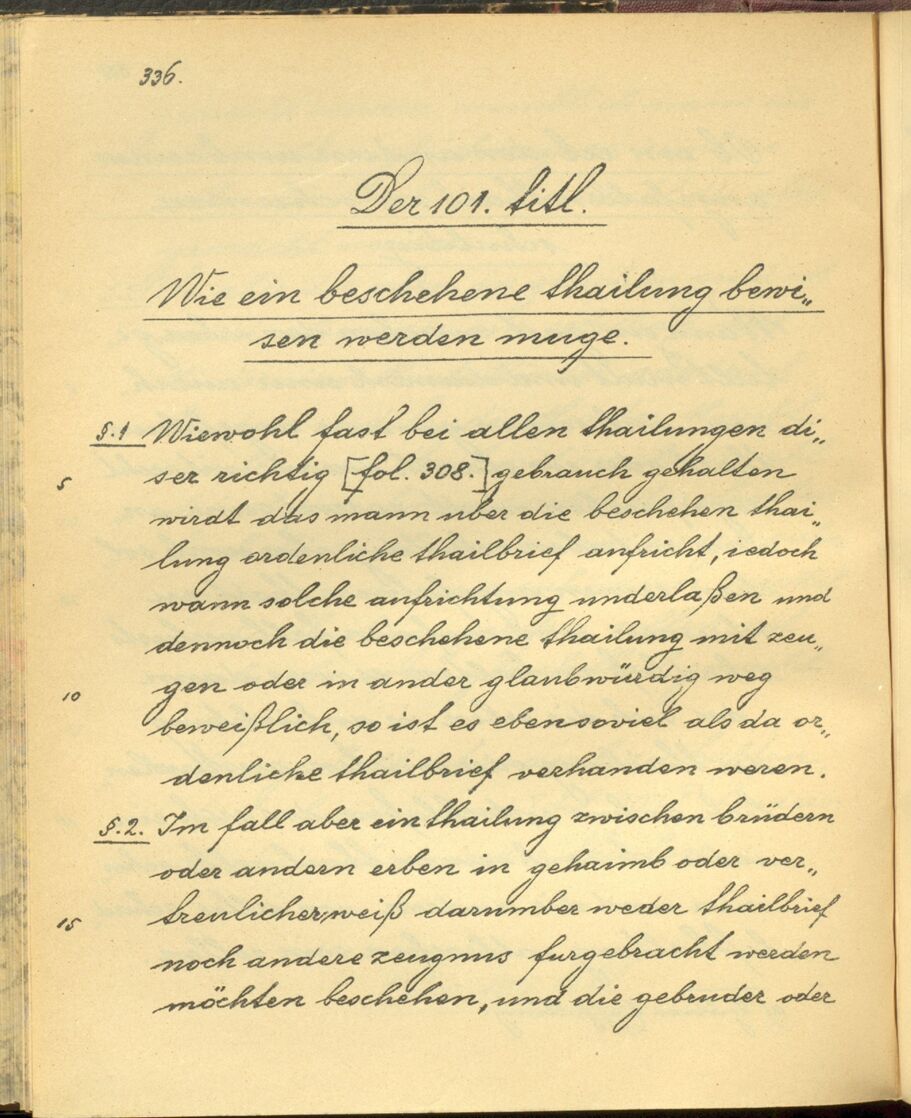 336.
Der 101. titl.
Wie ein beschehene thailung bewi„
sen werden muge.
§.1 Wiewohl fast bei allen thailungen di„
5 ser richtig [fol. 308.] gebrauch gehalten
wirdt das mann uber die beschehen thai„
lung ordenliche thailbrief aufricht, iedoch
wann solche aufrichtung underlaßen und
dennoch die beschehene thailung mit zeu„
10 gen oder in ander glaubwürdig weg
beweißlich, so ist es ebensoviel als da or„
denliche thailbrief verhanden weren.
§.2. Im fall aber ein thailung zwischen brüdern
oder andern erben in gehaimb oder ver„
15 treulicher weiß darumber weder thailbrief
noch andere zeugnus furgebracht werden
möchten beschehen, und die gebruder oder